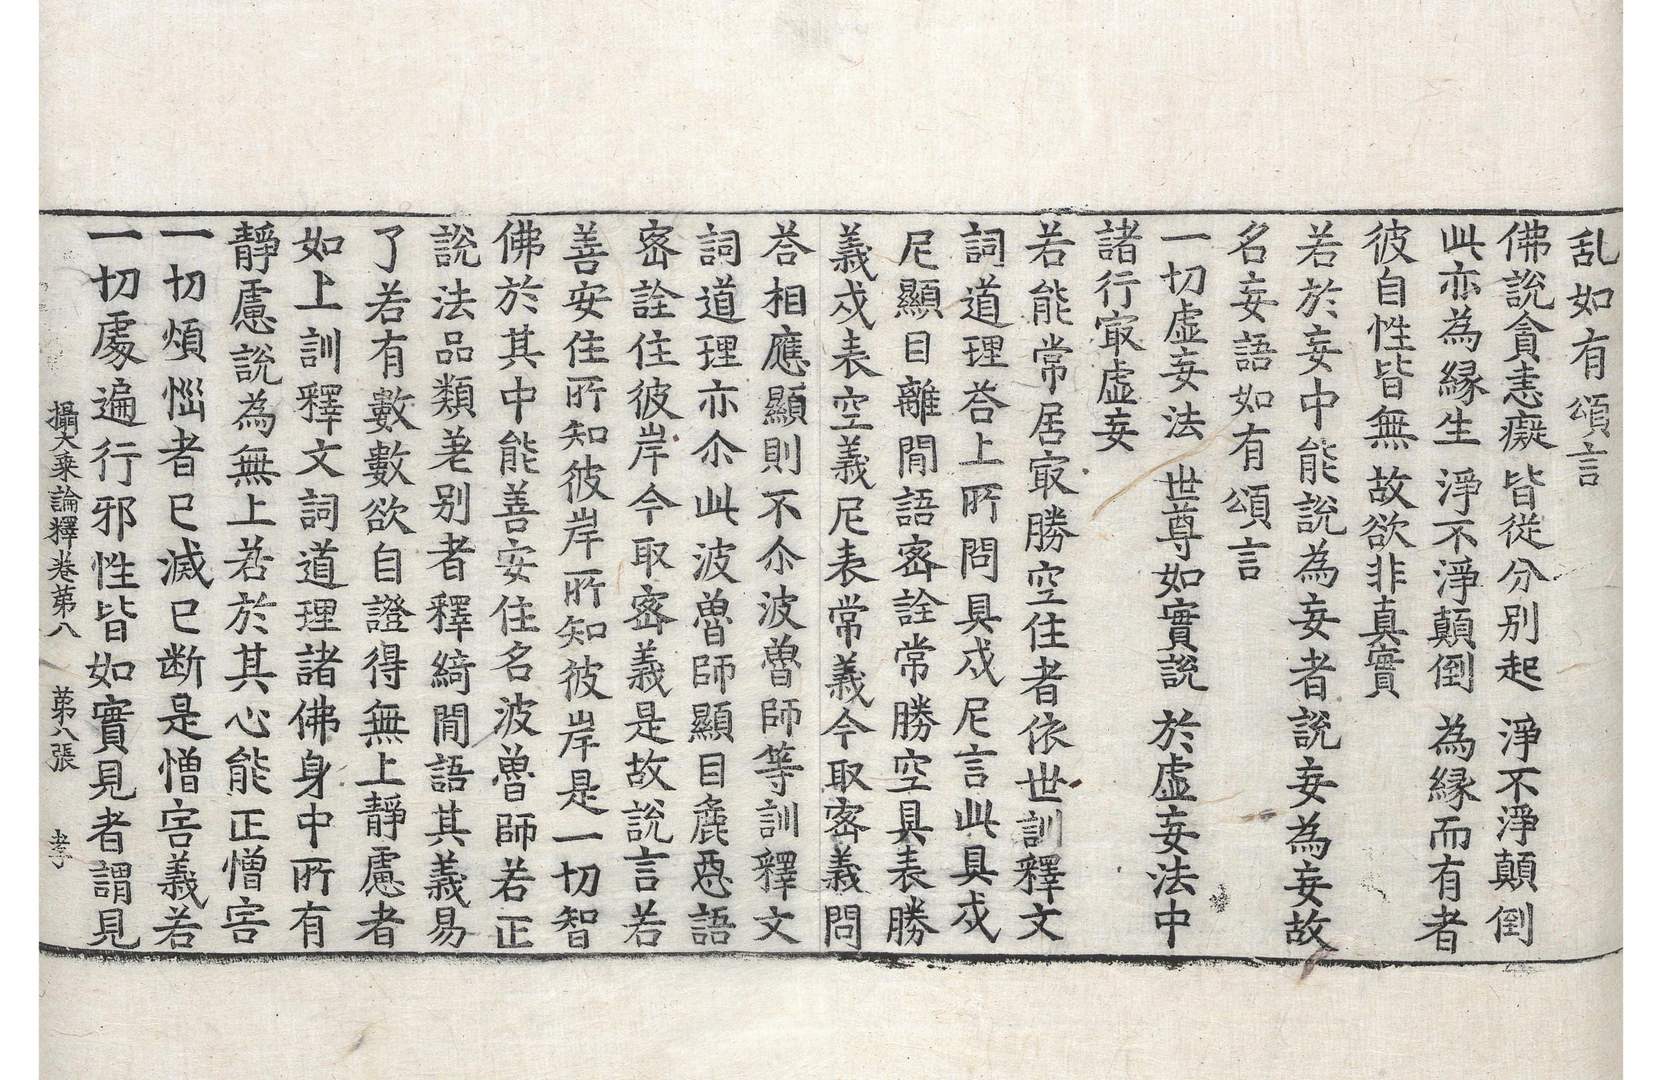 乱如有頌言
佛說貪恚癡皆從分別起 淨不淨顛倒
此亦為緣生 淨不淨顛倒 為緣而有者
彼自性皆無 故欲非真實
若於妄中能說為妄者說妄為妄故
名妄語如有頌言
一切虛妄法 世尊如實說 於虛妄法中
諸行㝡虛妄
若能常居㝡勝空住者依世訓釋文
詞道理荅上所問具戍尼言此具戍
尼顯目離間語密詮常勝空具表勝
義戍表空義尼表常義今取密義問
荅相應顯則不尒波魯師等訓釋文
詞道理亦尒此波魯師顯目麁惡語
密詮住彼岸今取密義是故說言若
善安住所知彼岸所知彼岸是一切智
佛於其中能善安住名波魯師若正
說法品類差别者釋綺間語其義易
了若有數數欲自證得無上靜慮者
如上訓釋文詞道理諸佛身中所有
靜慮說為無上若於其心能正憎害
一切煩惱者已滅已断是憎害義若
一切處遍行邪性皆如實見者謂見
攝大乘論釋卷第八 第八張 孝